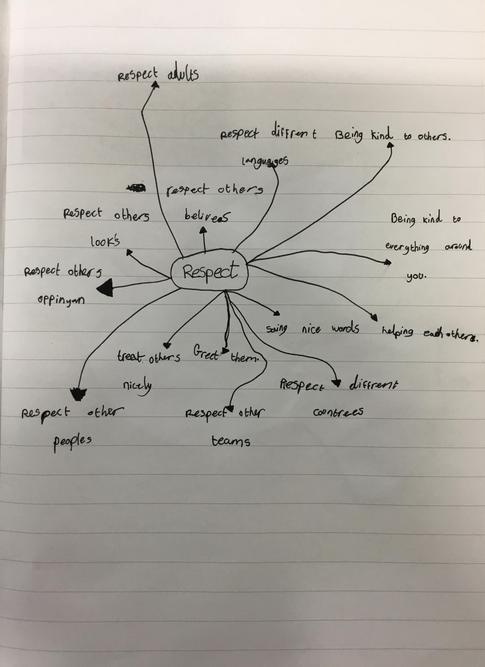 Respect adults
Respect diffrent
languages
Being kind to others.
respect others
beliveS
Respect others
look's
Being kind to
everything around
you.
Respect others
oppinyan
Respect
saing nice words
helping each others.
treat others
nicely
Greet them.
Respect diffrent
countrees
Respect other
peoples
Respect other
teams